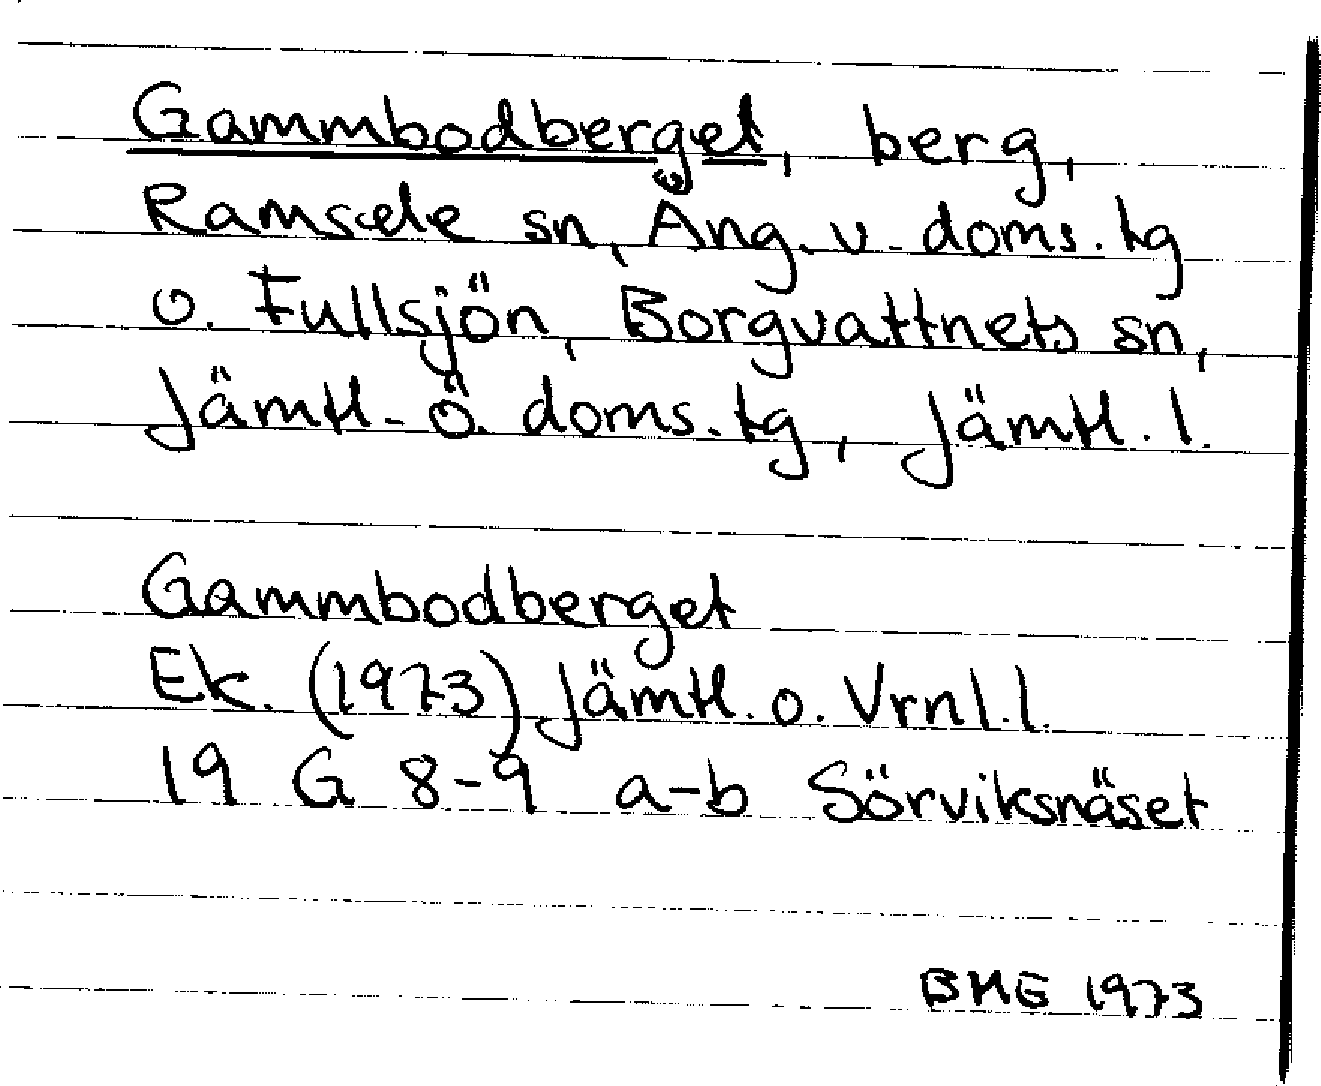 Gammbodberget, berg,
Ramsele sn, Ång. v. doms. tg
o. Fullsjön, Borgvattnets sn,
Jämtl. Ö. doms. tg, Jämtl. l.
Gammbodberget
Ek. (1973) Jämtl. o. Vrnl. l.
19 G 8-9 a-b Sörviksnäset
BME 1973